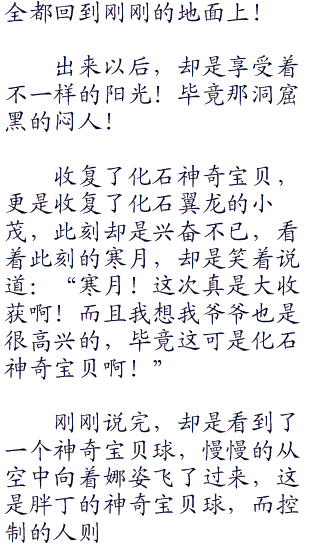 全都回到刚刚的地面上！
出来以后，却是享受着
不一样的阳光！毕竟那洞窟
黑的闷人！
收复了化石神奇宝贝，
更是收复了化石翼龙的小
茂，此刻却是兴奋不已，看
着此刻的寒月，却是笑着说
道：“寒月！这次真是大收
获啊！而且我想我爷爷也是
很高兴的，毕竟这可是化石
神奇宝贝啊！”
刚刚说完，却是看到了
一个神奇宝贝球，慢慢的从
空中向着娜姿飞了过来，这
是胖丁的神奇宝贝球，而控
制的人则